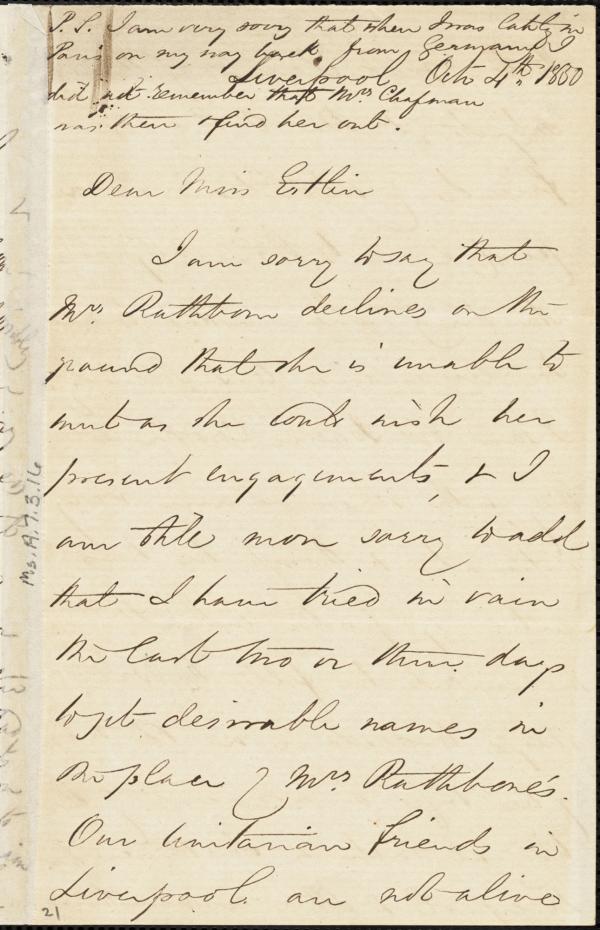 P.S. I am very sorry that when I was lately in
Paris on my way back from Germany I
Liverpool Oct 4th, 1850
did not remember that Mrs Chapman
was there & find her out.
Dear Miss Estlin
I am sorry to say that
Mrs. Rathbone declines on the
ground that she is unable to
meet as she could wish her
present engagements, & I
am still more sorry to add
that I have tried in vain
the last two or three days
to get desirable names in
the place of Mrs Rathbone's.
Our Unitarian friends in
Liverpool are not alive
Ms. A.7.3.16
21